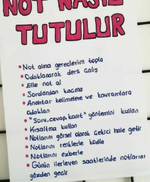 NOT NASIL
TUTULUR
• Not alma gereçlerini topla
• Odaklanarak ders çalış
• Elle not al
• Sıradanlıktan kaçma
• Anahtar kelimelere ve kavramlara
odaklan
• "Soru, cevap, kanıt" yöntemini kullan
• Kısaltma kullan
• Notlarını görsel olarak çekici hale getir
• Notlarını renklerle kodla
• Notlarını ezberle
• Günün ilerleyen saatlerinde notlarını
gözden geçir